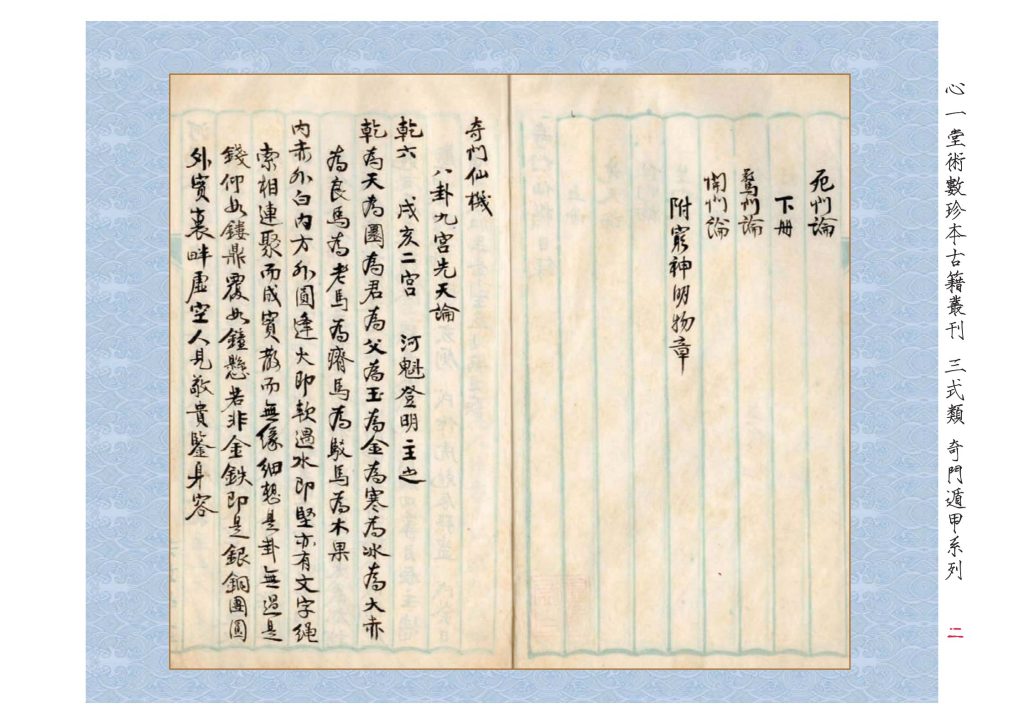 心一堂術數珍本古籍叢刊 三式類 奇門遁甲系列
二
死門論
下册
驚門論
開門論
附窮神明物章
奇门仙機
八卦九宮先天論
乾六 戌亥二宮 河魁登明主之
乾為天為圜為君為父為玉為金為寒為冰為大赤
為良馬為老馬為瘠馬為駁馬為木果
内赤外白内方外圓逢火即軟遇水即堅亦有文字绳
索相連聚而成賓散而無像细想是卦無過是
錢仰如鏤鼎覆如鐘懸若非金鉄即是銀銅團圓
外實裏畔虚空人見敬貴鑒身容